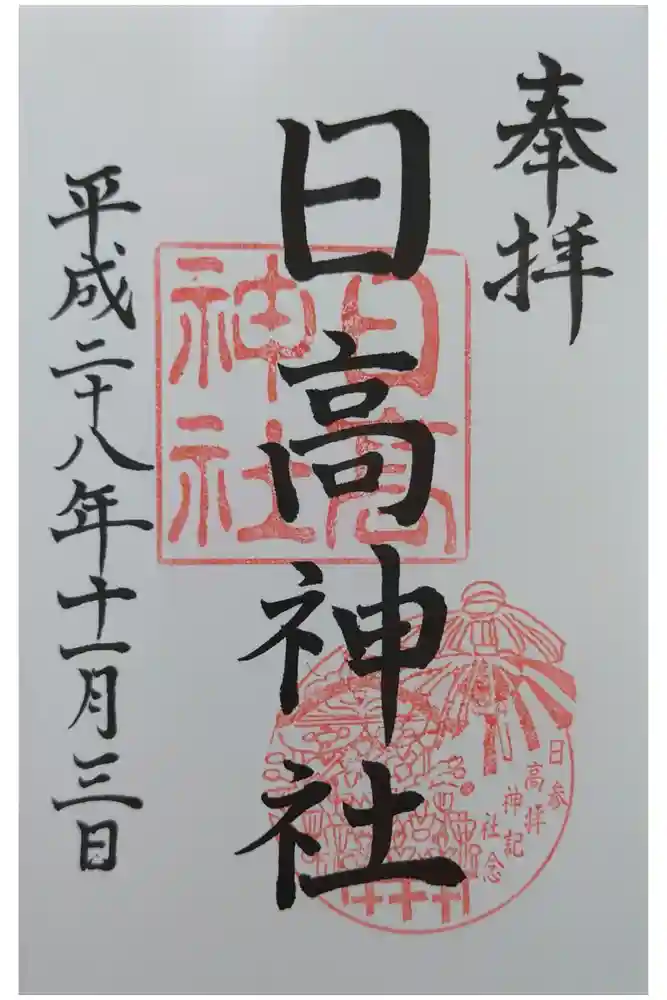 奉拝
日高神社
日高
神社
参拝記念
日高神社
平成二十八年十一月三日